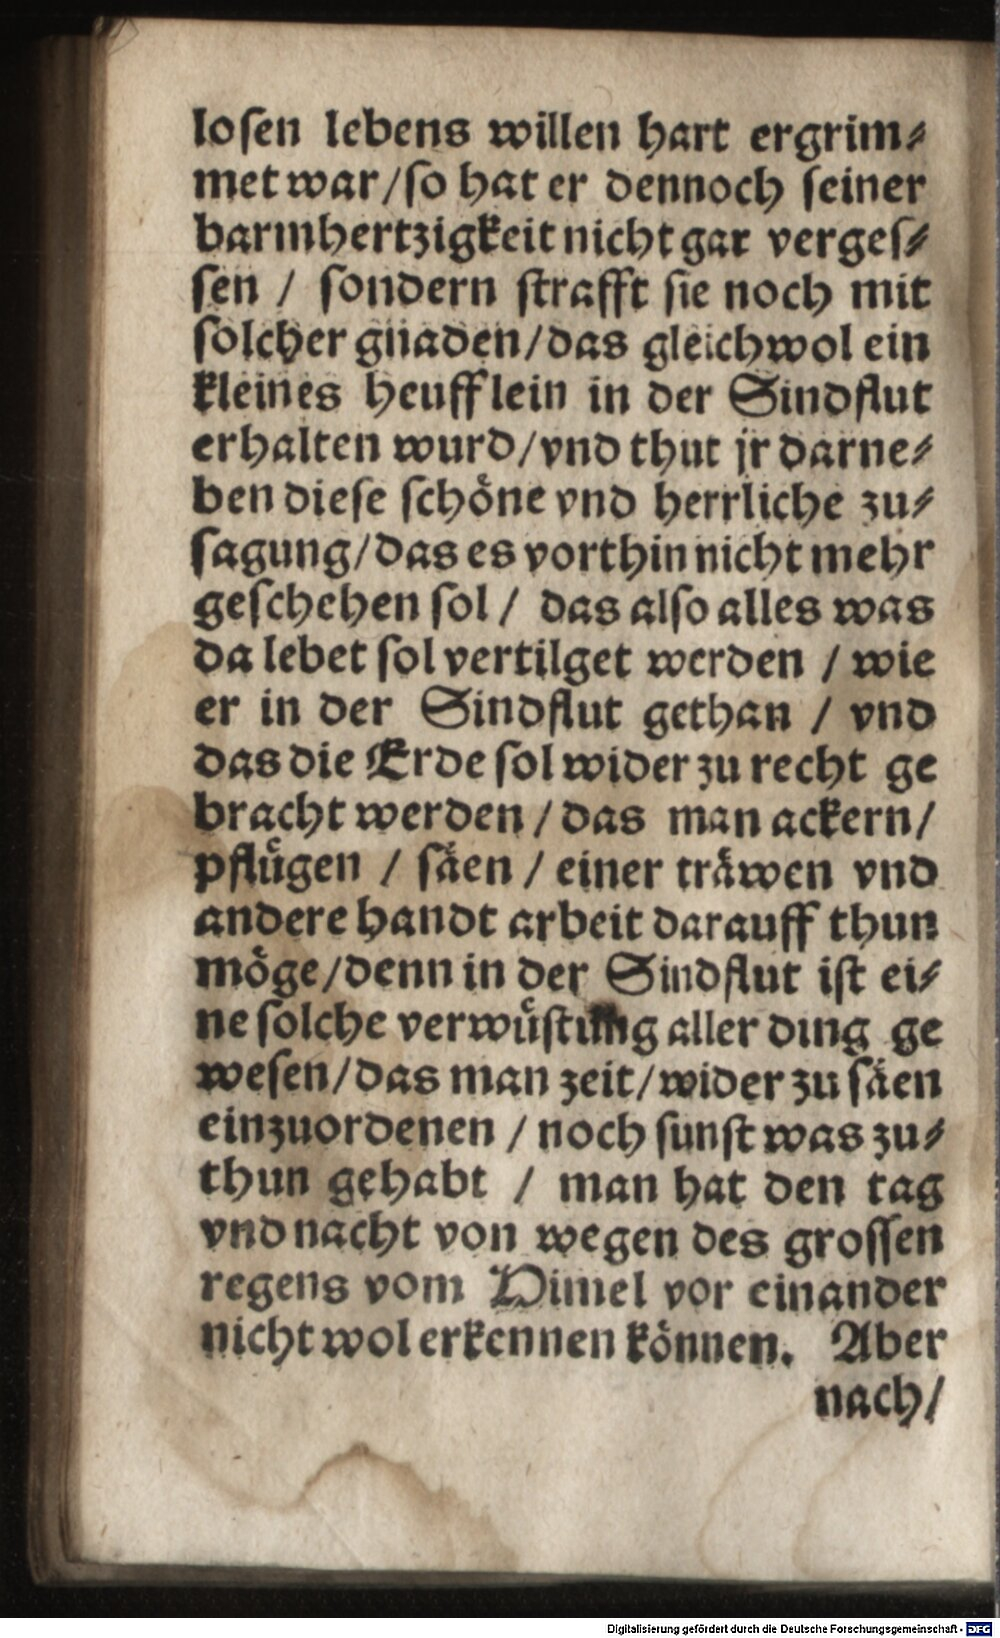 losen lebens willen hart ergrim⸗
met war/so hat er dennoch seiner
barmhertzigkeit nicht gar verges⸗
sen / sondern strafft sie noch mit
solcher gnaden/das gleichwol ein
kleines heufflein in der Sindflut
erhalten wurd/vnd thut jr darne⸗
ben diese schöne vnd herrliche zu⸗
sagung/das es vorthin nicht mehr
geschehen sol / das also alles was
da lebet sol vertilget werden / wie
er in der Sindflut gethan / vnd
das die Erde sol wider zu recht ge
bracht werden / das man ackern/
pflůgen / såen / einer tråwen vnd
andere handt arbeit darauff thun
möge/denn in der Sindflut ist ei⸗
ne solche verwůstung aller ding ge
wesen/das man zeit/wider zu såen
einzuordenen / noch sunst was zu⸗
thun gehabt / man hat den tag
vnd nacht von wegen des grossen
regens vom Himel vor einander
nicht wol erkennen können. Aber
nach/
Digitalisierung gefördert durch die Deutsche Forschungsgemeinschaft - DFG